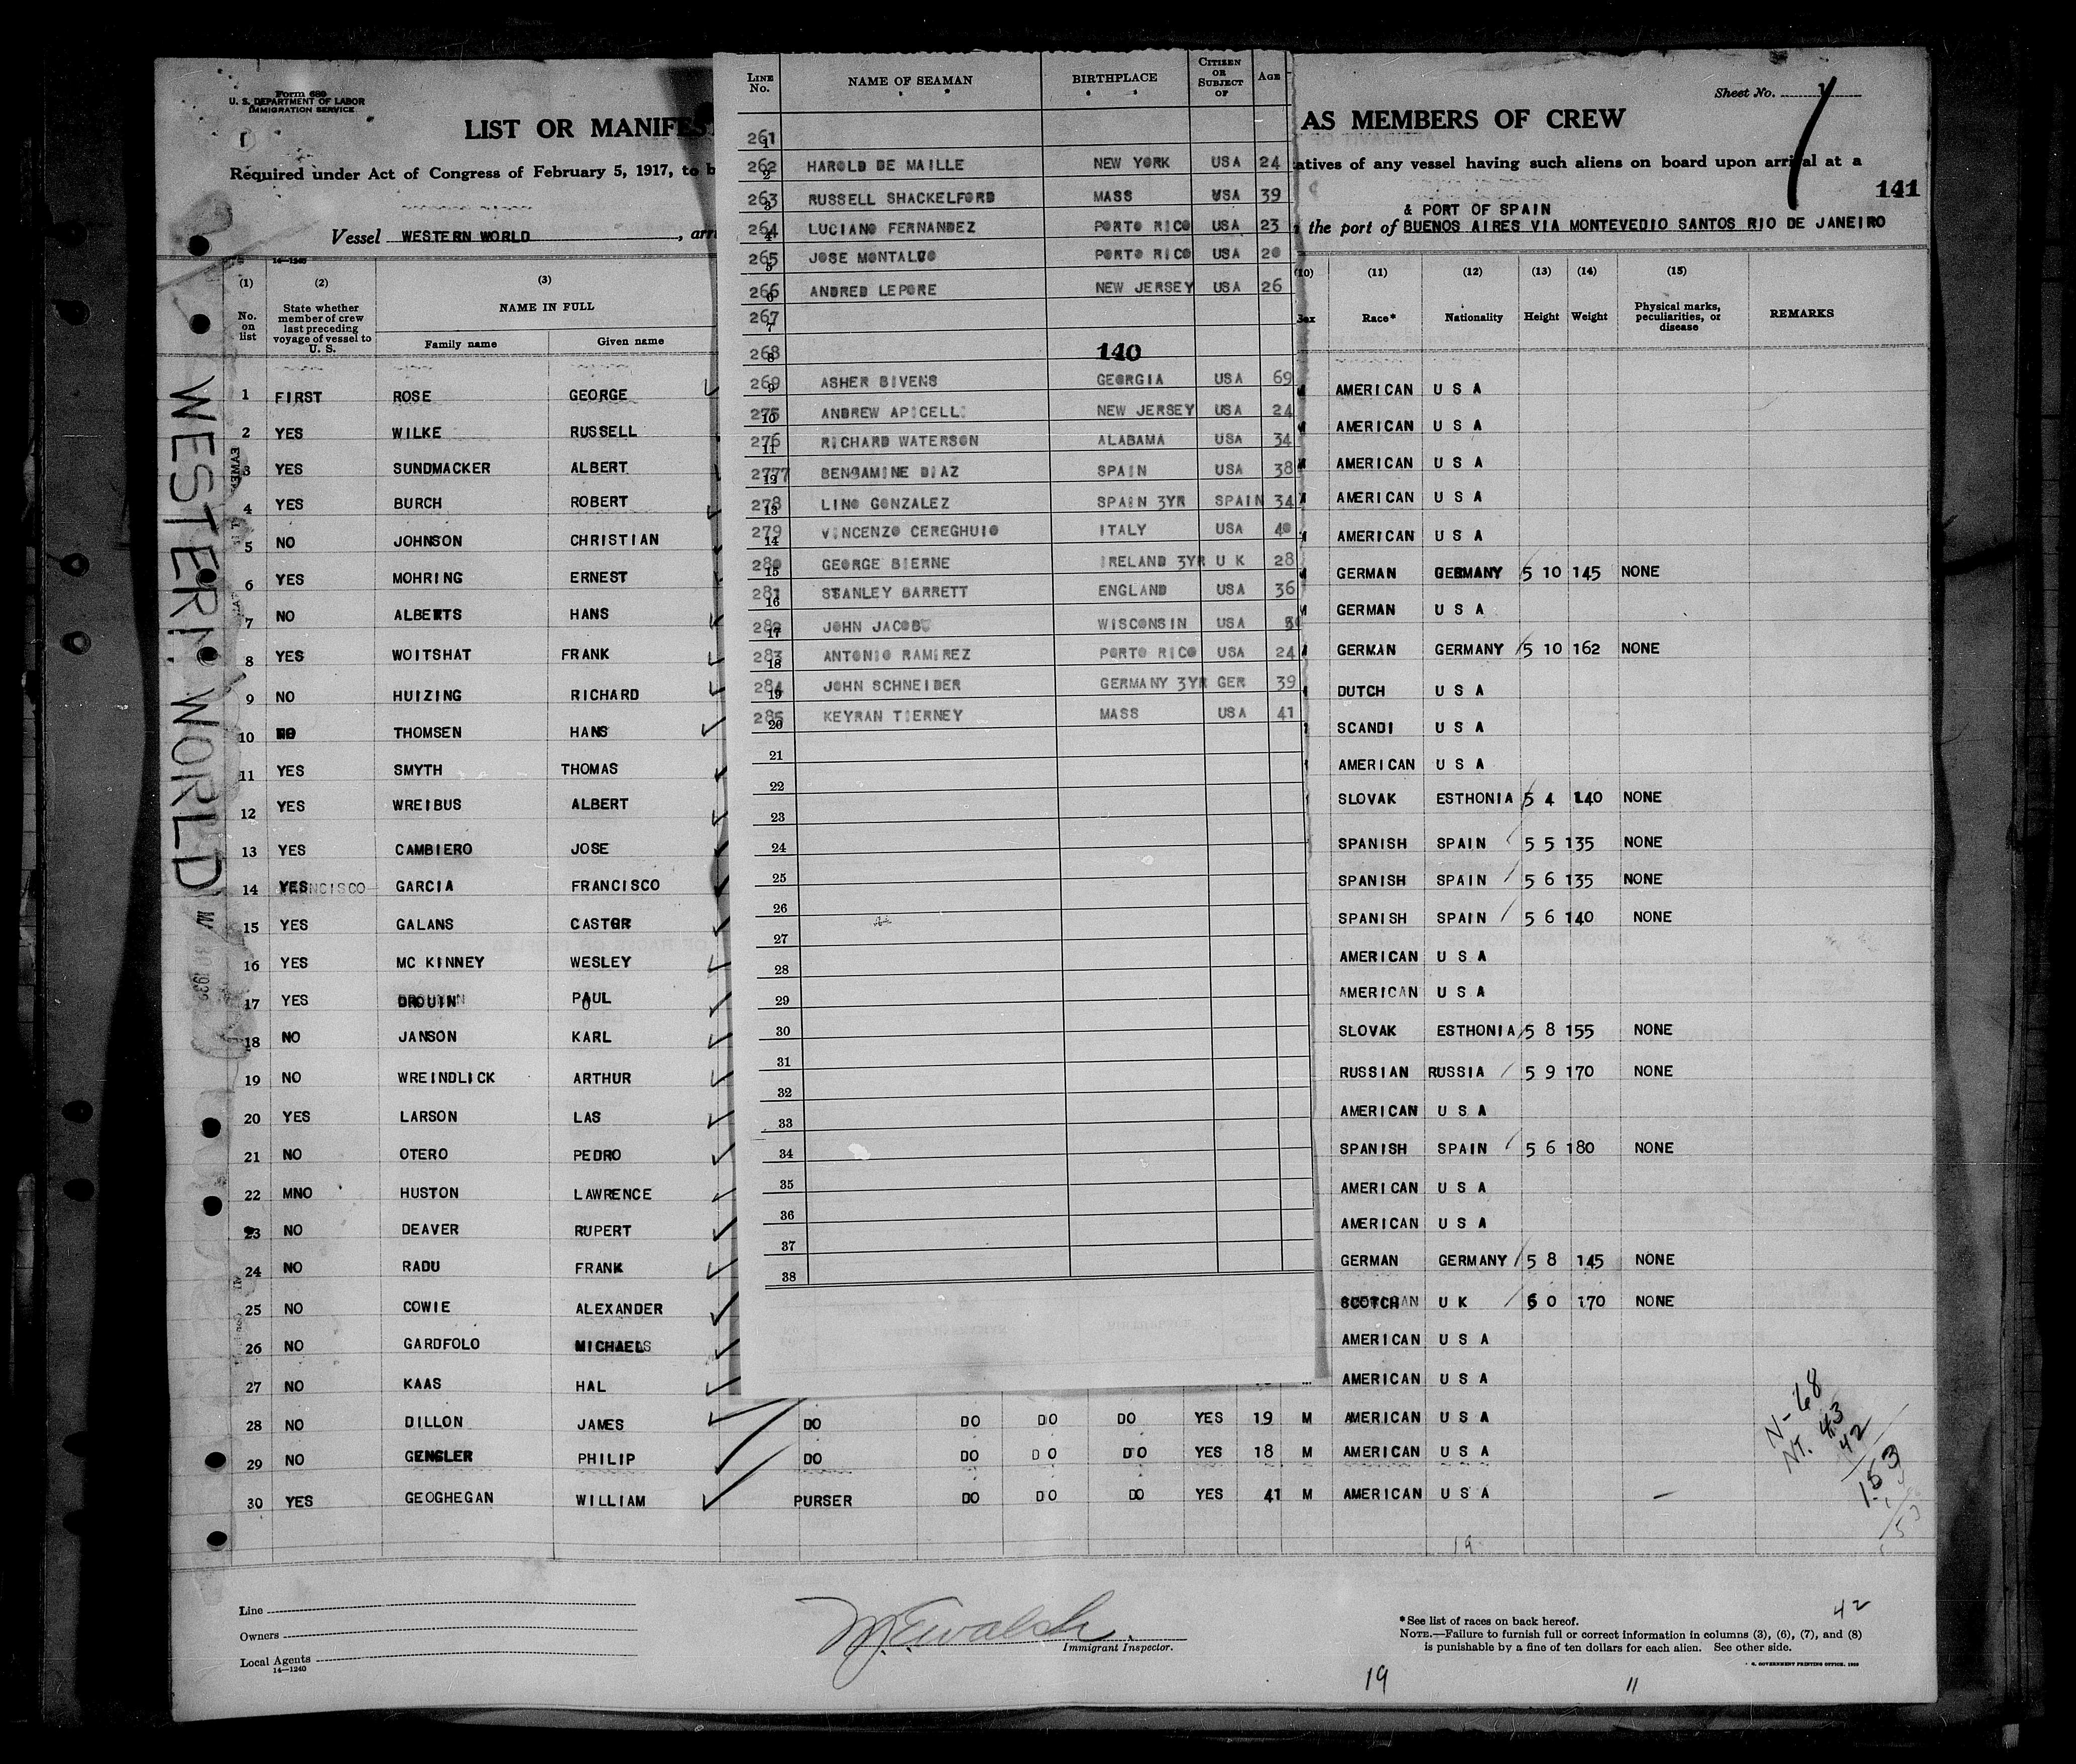 Form 689
U. S. DEPARTMENT OF LABOR
IMMIGRATION SERVICE
LIST OR MANIFES
AS MEMBERS OF CREW
Sheet No. 1
Required under Act of Congress of February 5, 1917, to b
atives of any vessel having such aliens on board upon arrival at a
141
& PORT OF SPAIN
Vessel WESTERN WORLD , arr
the port of BUENOS AIRES VIA MONTEVEDIO SANTOS RIO DE JANEIRO
WESTERN WORLD
14—1240
(1) (2) (3)
No. on list
State whether member of crew last preceding voyage of vessel to U. S.
NAME IN FULL
Family name Given name
1 FIRST ROSE GEORGE
2 YES WILKE RUSSELL
3 YES SUNDMACKER ALBERT
4 YES BURCH ROBERT
5 NO JOHNSON CHRISTIAN
6 YES MOHRING ERNEST
7 NO ALBERTS HANS
8 YES WOITSHAT FRANK
9 NO HUIZING RICHARD
10 NO THOMSEN HANS
11 YES SMYTH THOMAS
12 YES WREIBUS ALBERT
13 YES CAMBIERO JOSE
14 YES GARCIA FRANCISCO
15 YES GALANS CASTOR
16 YES MC KINNEY WESLEY
17 YES DROUIN PAUL
18 NO JANSON KARL
19 NO WREINDLICK ARTHUR
20 YES LARSON LAS
21 NO OTERO PEDRO
22 MNO HUSTON LAWRENCE
23 NO DEAVER RUPERT
24 NO RADU FRANK
25 NO COWIE ALEXANDER
26 NO GARDFOLO MICHAEL
27 NO KAAS HAL
28 NO DILLON JAMES DO DO DO DO YES 19 M AMERICAN U S A
29 NO GENGLER PHILIP DO DO DO DO YES 18 M AMERICAN U S A
30 YES GEOGHEGAN WILLIAM PURSER DO DO DO YES 41 M AMERICAN U S A
LINE No. NAME OF SEAMAN BIRTHPLACE CITIZEN OR SUBJECT OF AGE
261 1
262 2 HAROLD DE MAILLE NEW YORK USA 24
263 3 RUSSELL SHACKELFORD MASS USA 39
264 4 LUCIANO FERNANDEZ PORTO RICO USA 23
265 5 JOSE MONTALVO PORTO RICO USA 20
266 6 ANDRED LEPORE NEW JERSEY USA 26
267 7
268 8 140
269 9 ASHER BIVENS GEORGIA USA 69
275 10 ANDREW APICELLI NEW JERSEY USA 24
276 11 RICHARD WATERSON ALABAMA USA 34
2777 12 BENGAMINE DIAZ SPAIN USA 38
278 13 LINO GONZALEZ SPAIN 3YR SPAIN 34
279 14 VINCENZO CEREGHUIO ITALY USA 40
280 15 GEORGE BIERNE IRELAND 3YR U K 28
281 16 STANLEY BARRETT ENGLAND USA 36
282 17 JOHN JACOBS WISCONSIN USA
283 18 ANTONIO RAMIREZ PORTO RICO USA 24
284 19 JOHN SCHNEIDER GERMANY 3YR GER 39
285 20 KEYRAN TIERNEY MASS USA 41
21
22
23
24
25
26
27
28
29
30
31
32
33
34
35
36
37
38
(10) (11) (12) (13) (14) (15)
Sex Race* Nationality Height Weight Physical marks, peculiarities, or disease REMARKS
AMERICAN U S A
AMERICAN U S A
AMERICAN U S A
AMERICAN U S A
AMERICAN U S A
GERMAN GERMANY 5 10 145 NONE
GERMAN U S A
GERMAN GERMANY 5 10 162 NONE
DUTCH U S A
SCANDI U S A
AMERICAN U S A
SLOVAK ESTHONIA 5 4 140 NONE
SPANISH SPAIN 5 5 135 NONE
SPANISH SPAIN 5 6 135 NONE
SPANISH SPAIN 5 6 140 NONE
AMERICAN U S A
AMERICAN U S A
SLOVAK ESTHONIA 5 8 155 NONE
RUSSIAN RUSSIA 5 9 170 NONE
AMERICAN U S A
SPANISH SPAIN 5 6 180 NONE
AMERICAN U S A
AMERICAN U S A
GERMAN GERMANY 5 8 145 NONE
SCOTCH U K 6 0 170 NONE
AMERICAN U S A
AMERICAN U S A
N-68
NT. 43
42
153
19
Line
Owners
Local Agents
14—1240
Immigrant Inspector.
*See list of races on back hereof.
NOTE.—Failure to furnish full or correct information in columns (3), (6), (7), and (8)
is punishable by a fine of ten dollars for each alien. See other side.
GOVERNMENT PRINTING OFFICE
42
19
11